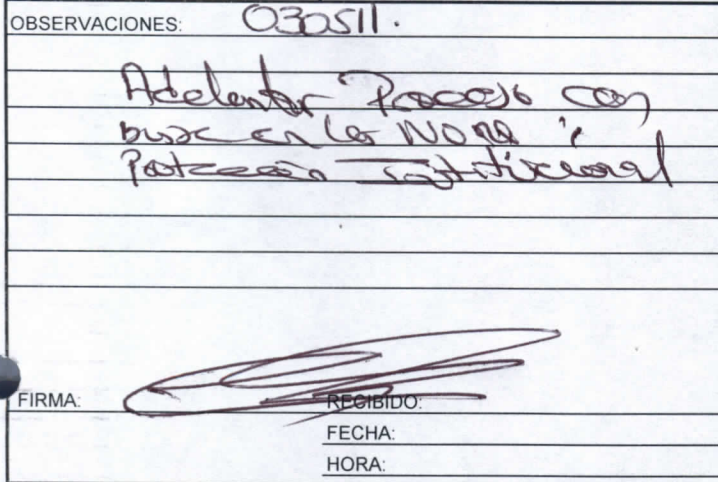 OBSERVACIONES: 030511.
Adelantar Proceso con
base en la NORMA y
Protección institucional
FIRMA:
RECIBIDO:
FECHA:
HORA: